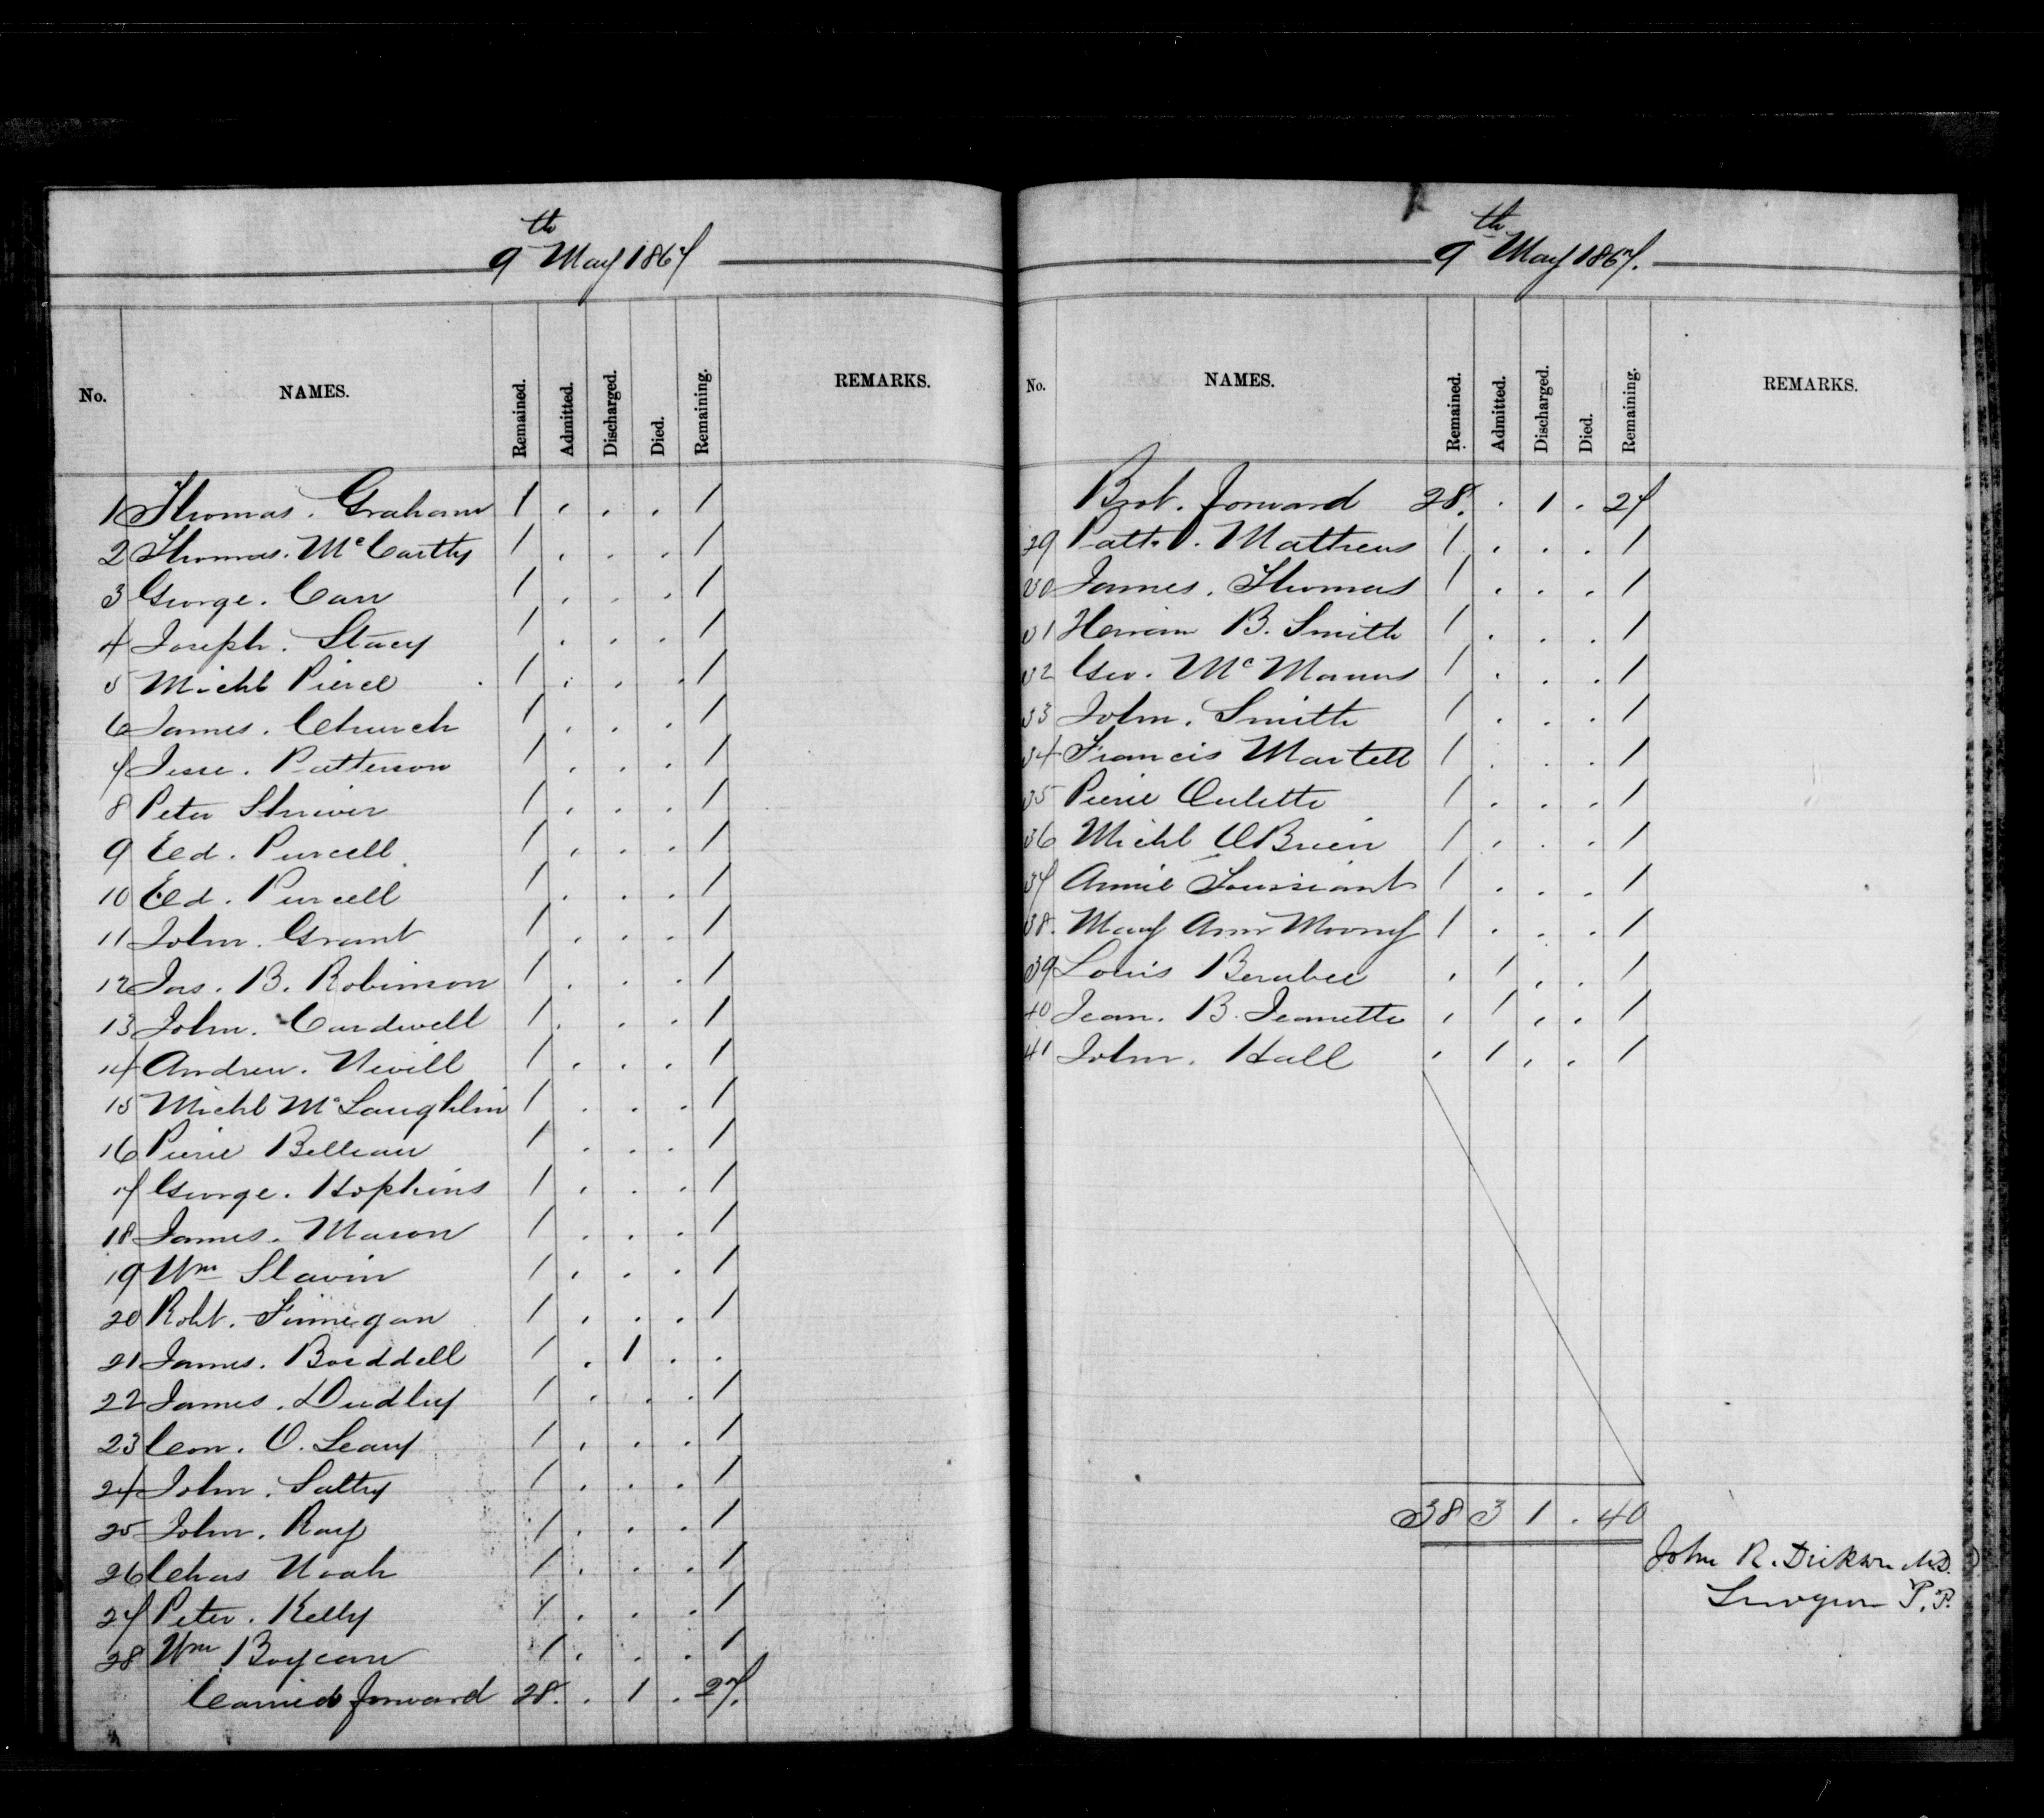 9th May 1867
No. NAMES. Remained. Admitted. Discharged. Died. Remaining. REMARKS.
1 Thomas. Graham 1 . . . 1
2 Thomas. McCarthy 1 . . . 1
3 George. Carr 1 . . . 1
4 Joseph. Stacy 1 . . . 1
5 Michl Pierce 1 . . . 1
6 James. Church 1 . . . 1
7 Jesse. Patterson 1 . . . 1
8 Peter Shriver 1 . . . 1
9 Ed. Purcell 1 . . . 1
10 Ed. Purcell 1 . . . 1
11 John. Grant 1 . . . 1
12 Jas. B. Robinson 1 . . . 1
13 John. Cardwell 1 . . . 1
14 Andrew. Nevill 1 . . . 1
15 Michl McLaughlin 1 . . . 1
16 Pierre Belleau 1 . . . 1
17 George. Hopkins 1 . . . 1
18 James. Mason 1 . . . 1
19 Wm Slavin 1 . . . 1
20 Robt. Finnegan 1 . . . 1
21 James. Boiddell 1 . 1 . .
22 James. Dudley 1 . . . 1
23 Con. O. Leary 1 . . . 1
24 John. Saltry 1 . . . 1
25 John. Ray 1 . . . 1
26 Chas Noah 1 . . . 1
27 Peter. Kelly 1 . . . 1
28 Wm Boycan 1 . . . 1
Carried forward 28. . 1 . 27.
9th May 1867.
No. NAMES. Remained. Admitted. Discharged. Died. Remaining. REMARKS.
Brot. forward 28. . 1 . 27
29 Patk. Mathews 1 . . . 1
30 James. Thomas 1 . . . 1
31 Hiram B. Smith 1 . . . 1
32 Geo. McManus 1 . . . 1
33 John. Smith 1 . . . 1
34 Francis Martell 1 . . . 1
35 Pierre Oulette 1 . . . 1
36 Michl OBrien 1 . . . 1
37 Annie Toussiant 1 . . . 1
38. Mary Ann Moony 1 . . . 1
39 Louis Berubee . 1 . . 1
40 Jean. B. Jeanette . 1 . . 1
41 John. Hall . 1 . . 1
38 3 1 . 40
John R. Dickson M.D.
Surgeon P.P.